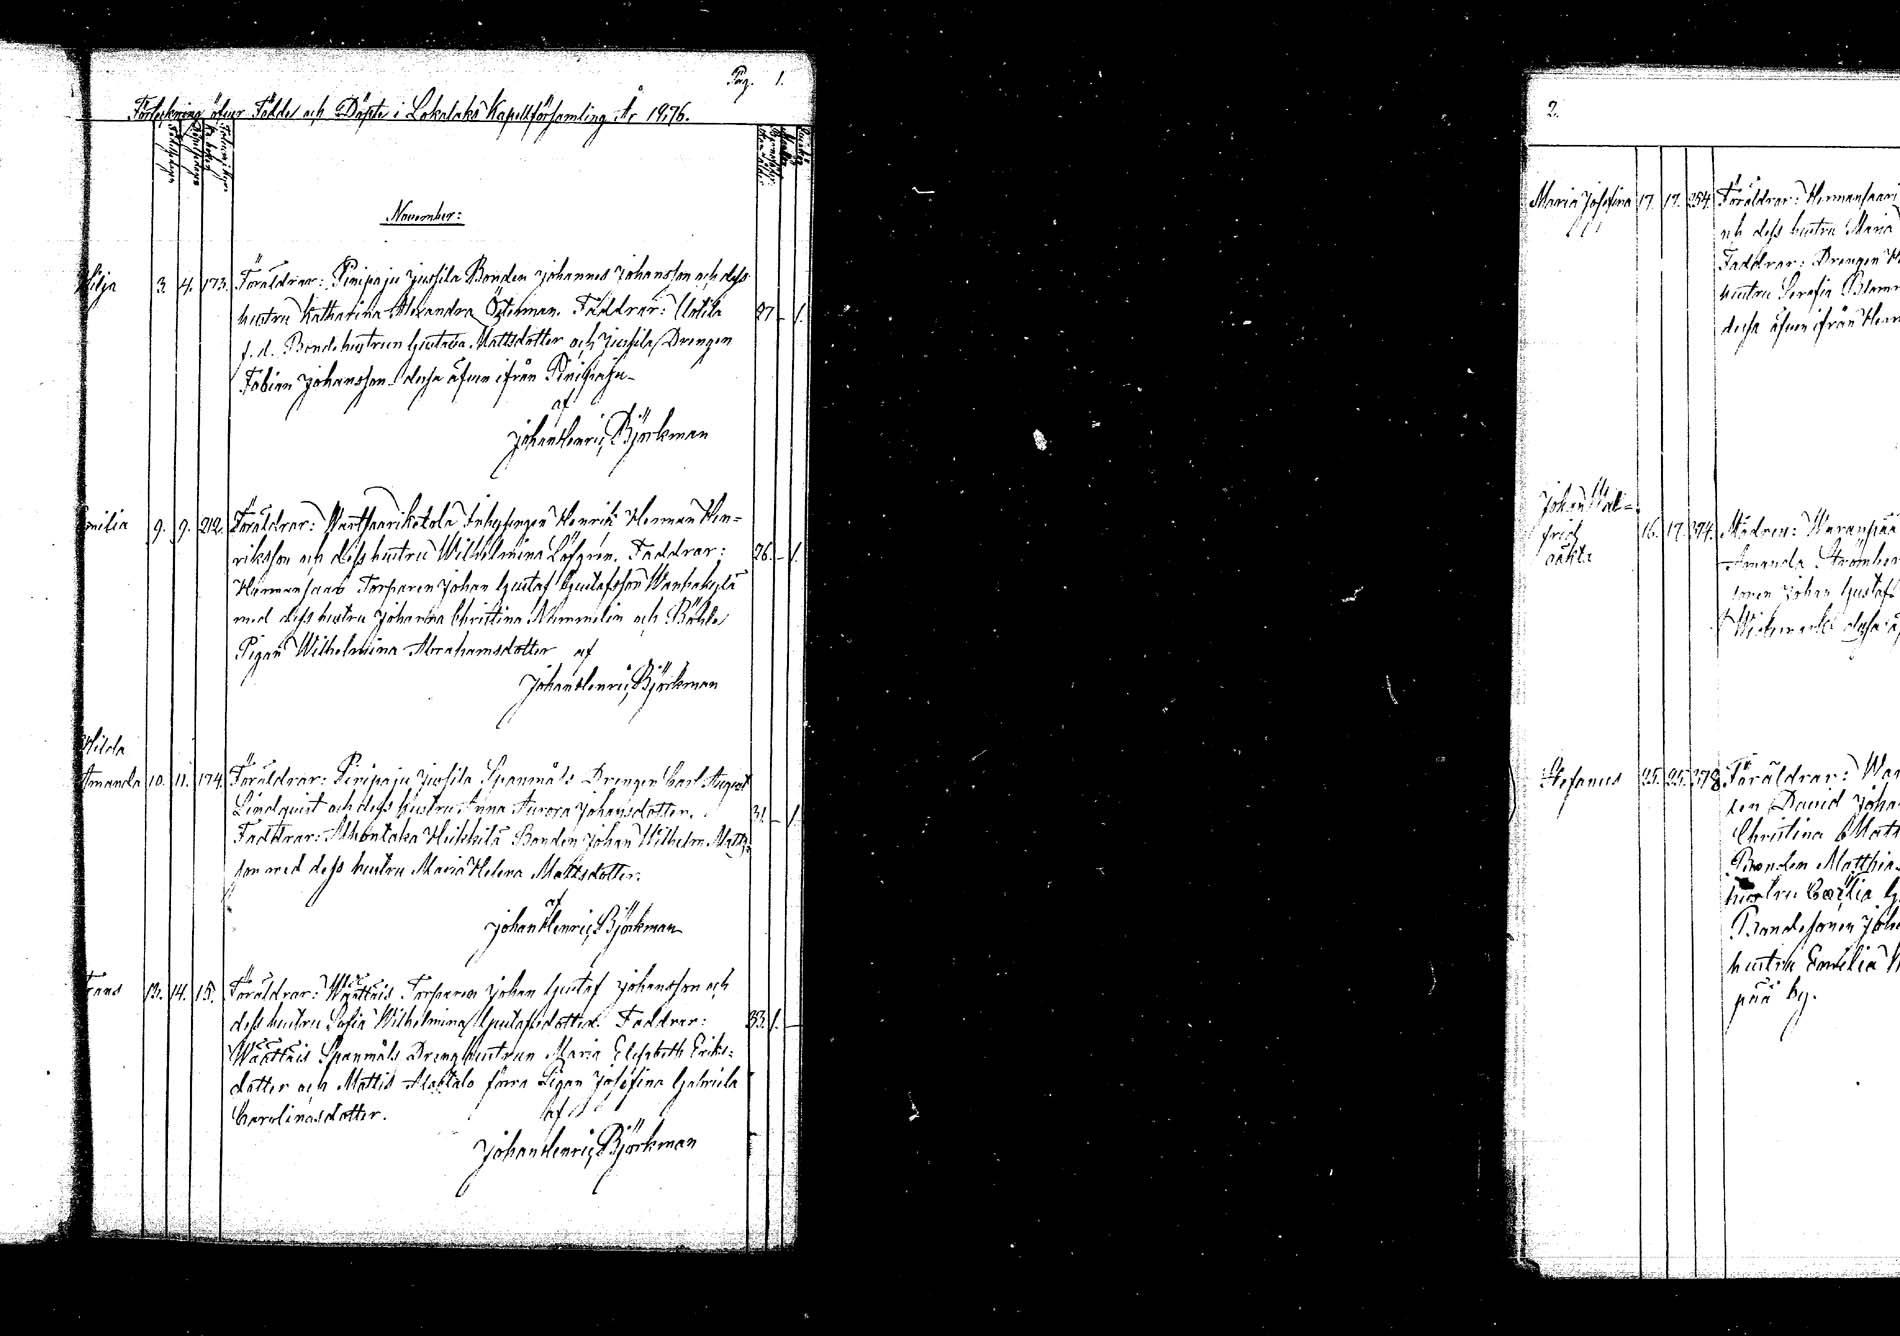 Pag. 1.
Förteckning öfver Födde och Döpte i Lokalaks Kapellförsamling År 1876.
November:
Hilja 3. 4. 173. Föräldrar: Pinipaju Jussila Bonden Johannes Johansson och dess
hustru Katharina Alexandra Österman. Faddrar: Uotila 27 – 1.
f. d. Bondehustrun Gustava Mattsdotter och Jussila Drengen
Fabian Johansson dessa äfven ifrån Pinipaju
af
Johan Henric Björkman
Emilia 9. 9. 212. Föräldrar: Inhysingen Henrik Herman Hen=
riksson och dess hustru Wilhelmina Löfgren. Faddrar: 26. – 1.
Hermansaari Torparen Johan Gustaf Gustafsson Wanhakylä
med dess hustru Johanna Christina Nummelin och Böhle
Pigan Wilhelmina Abrahamsdotter af
Johan Henric Björkman
Hilda
Amanda 10. 11. 174. Föräldrar: Pinipaju Jussila Spanmåls Drengen Carl August
Lindquist och dess hustru Anna Aurora Johansdotter. 31. – 1.
Faddrar: Heikkilä Bonden Johan Wilhelm Matts=
son med dess hustru Maria Helena Mattsdotter.
af
Johan Henric Björkman
Frans 13. 14. 15. Föräldrar: Torparen Johan Gustaf Johansson och
dess hustru Sofia Wilhelmina Gustafsdotter. Faddrar: 33. 1. –
Spanmåls Drenghustrun Maria Elisabeth Eriks=
dotter och Mattis Alastalo förra Pigan Josefina Gabriela
Carolinasdotter.
af
Johan Henric Björkman
2.
Maria Josefina 17. 17. 254. Föräldrar: Hermansaari
och dess hustru Maria
Faddrar: Drengen
hustru Serafia
dessa äfven ifrån
Johan Wal=
frid 16. 17. 374. Modren:
oäkta Amanda
sonen Johan Gustaf
dessa
Stefanus 25. 25. 378 Föräldrar:
sen David
Christina
Bonden Matthias
hustru Cecilia
Bondesonen
hustru Emilia
pää by.